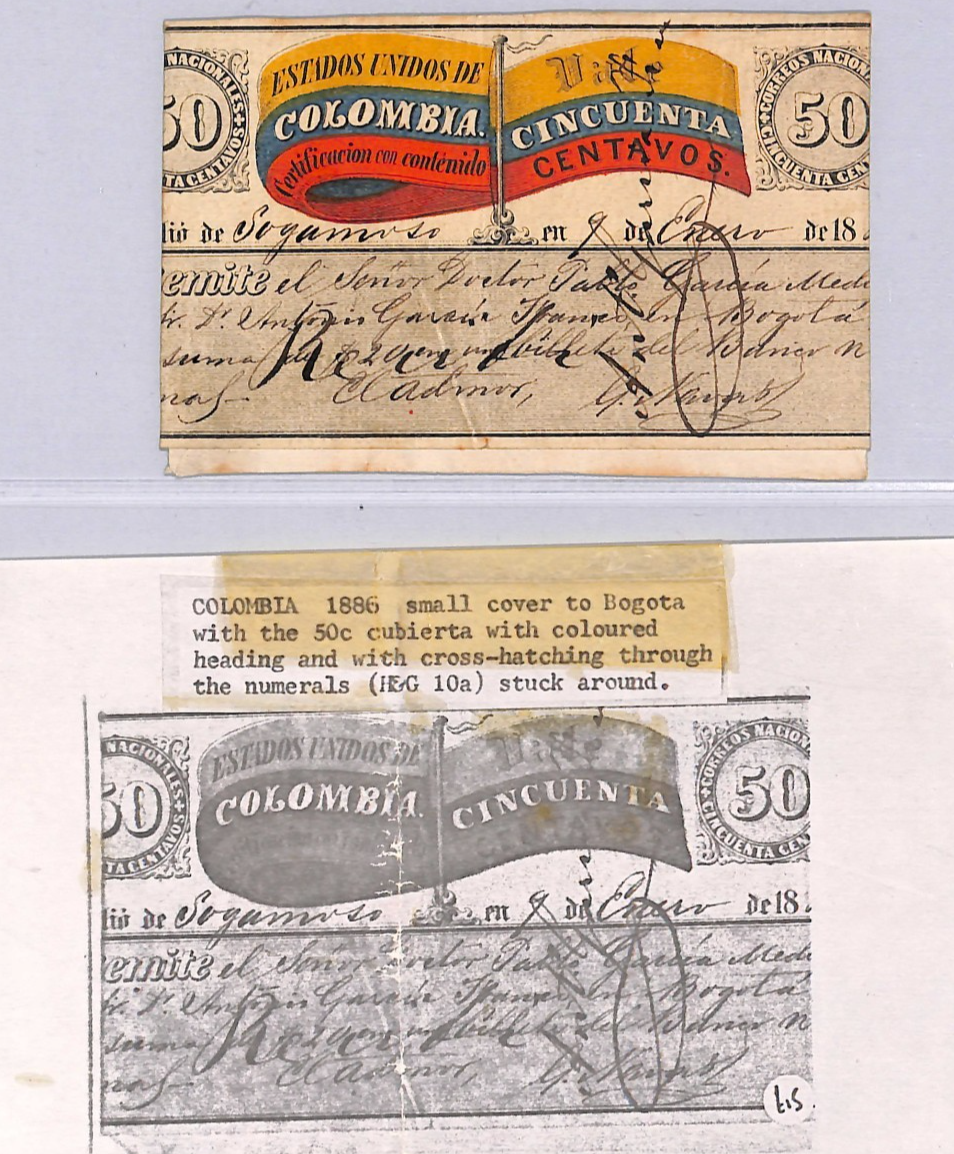 NACIONALES
50
TA CENTAVOS
ESTADOS UNIDOS DE
COLOMBIA.
Certificacion con contenido
Vale
CINCUENTA
CENTAVOS.
CORREOS NACION
50
CINCUENTA CEN
lió de Sogamoso en 9 de Enero de 18
emite el Señor Doctor Pablo García Med
Dr. Antonio García en Bogotá
suma de $20 en un billete del Banco N
nal El Admor, G. Navas
COLOMBIA 1886 small cover to Bogota
with the 50c cubierta with coloured
heading and with cross-hatching through
the numerals (H&G 10a) stuck around.
NACIONALES
50
TA CENTAVOS
ESTADOS UNIDOS DE
COLOMBIA.
Vale
CINCUENTA
CORREOS NACION
50
CINCUENTA CEN
lió de Sogamoso en 9 de Enero de 18
emite el Señor Doctor Pablo García Med
Dr. Antonio García en Bogotá
suma $20 en un billete del Banco N
nal El Admor, G. Navas